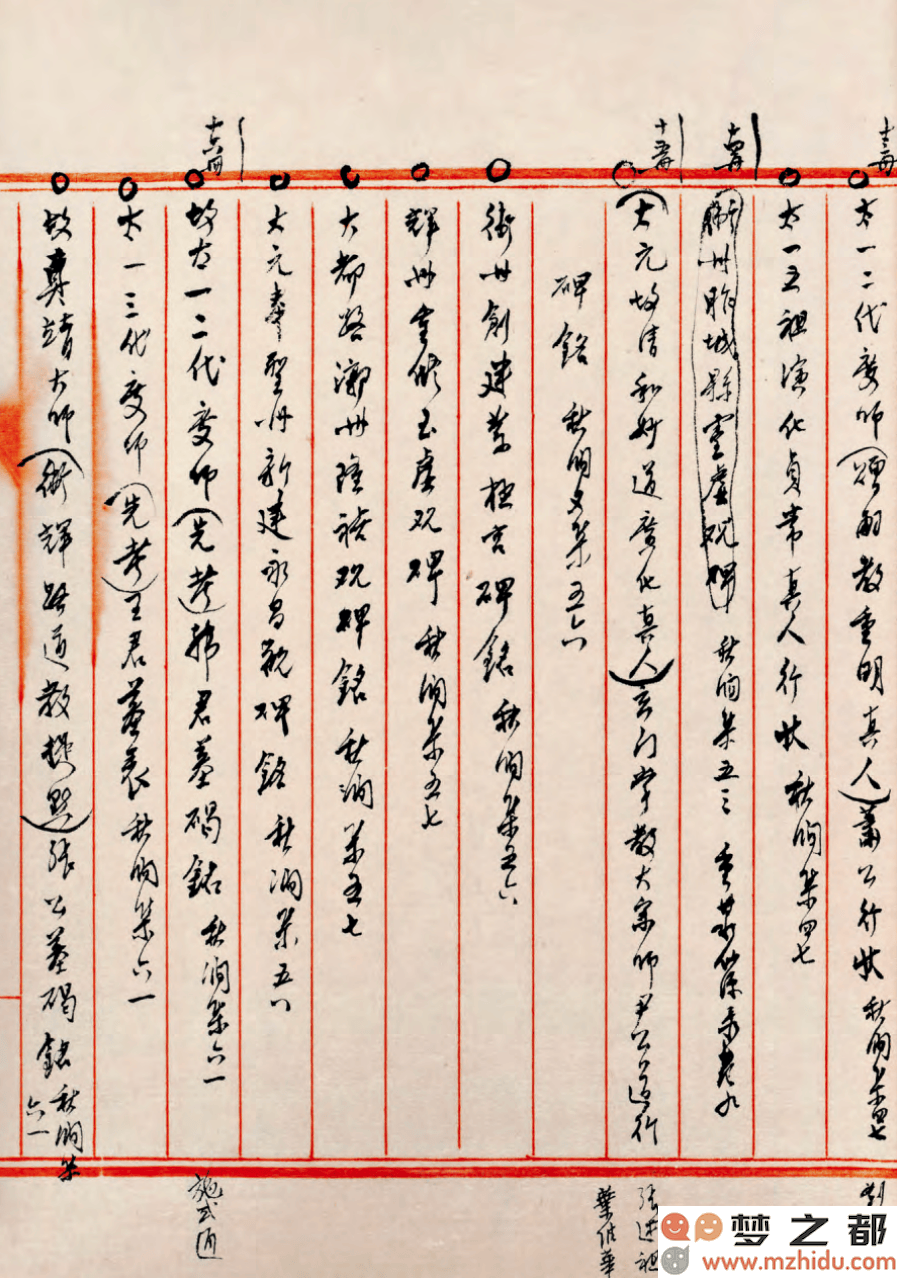 十三冊
太一二代度師(嗣教重明真人)蕭公行狀 秋澗集四七
太一五祖演化貞常真人行狀 秋澗集四七
十四冊
衛州胙城縣靈虛觀碑 秋澗集五三
十五冊
(大元故清和妙道廣化真人)玄門掌教大宗師尹公道行
碑銘 秋澗文集五六
衛州創建紫極宮碑銘 秋澗集五六
輝州重修玉虛觀碑 秋澗集五七
大都路漷州隆禧觀碑銘 秋澗集五七
大元奉聖州新建永昌觀碑銘 秋澗集五八
十六冊
故太一二代度師(先考)韓君墓碣銘 秋澗集六一
太一三代度師(先考)王君墓表 秋澗集六一
故真靖大師(衛輝路道教提點)張公墓碣銘 秋澗集
六一
劉
張進祖
葉
施
梦之都
www.mzhidu.com